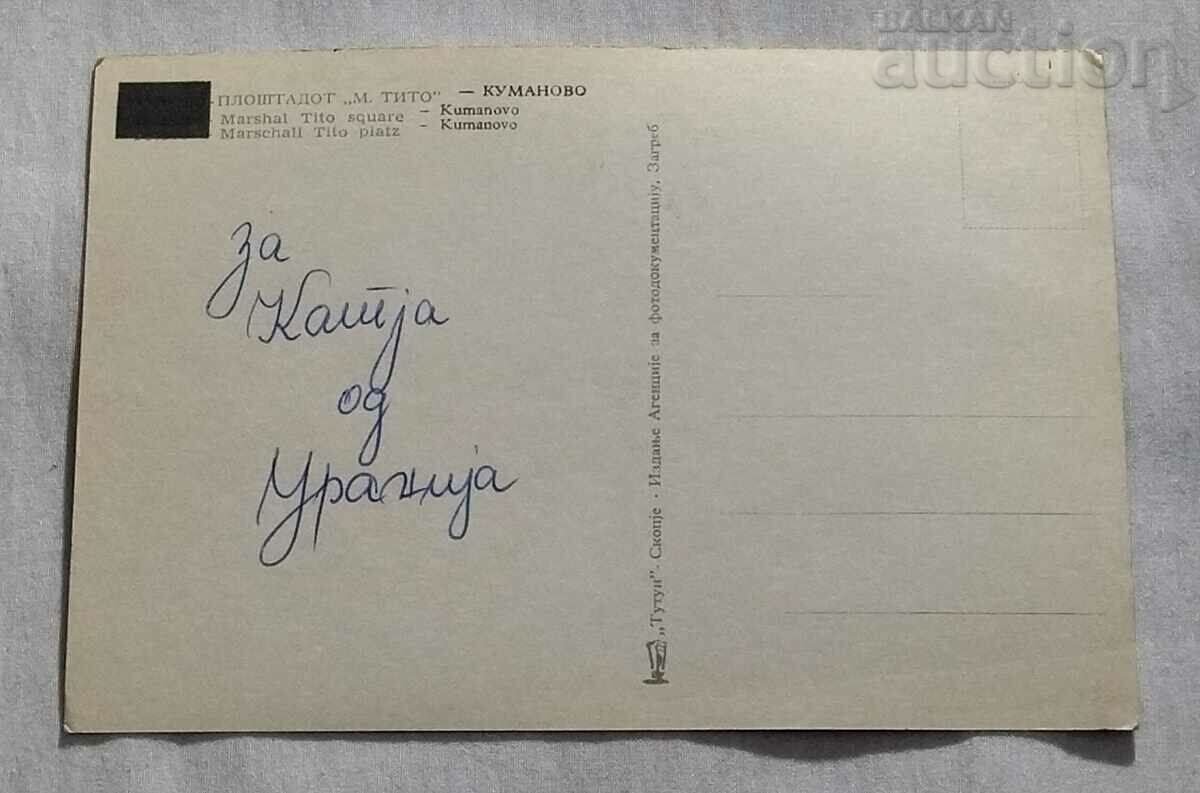 BALKAN
auction
ПЛОШТАДОТ „М. ТИТО" — КУМАНОВО
Marshal Tito square – Kumanovo
Marschall Tito platz – Kumanovo
за
Катја
од
Уранија
„Тутун" - Скопје · Издање Агенције за фотодокументацију, Загреб